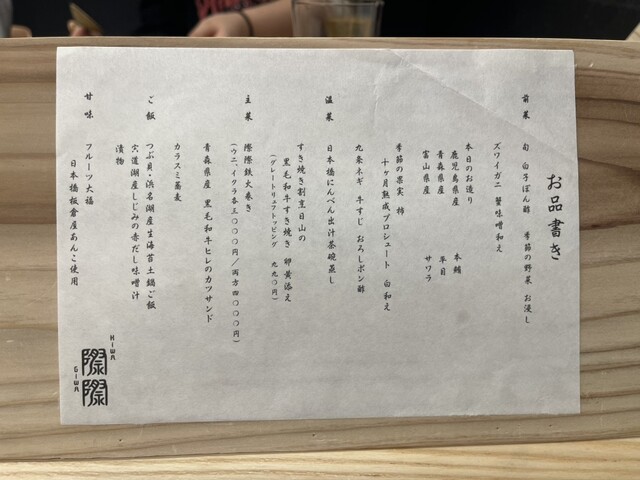 お品書き
前菜 旬 白子ぽん酢 季節の野菜 お浸し
ズワイガニ 蟹味噌和え
本日のお造り
鹿児島県産 本鮪
青森県産 平目
富山県産 サワラ
季節の果実 柿
十ヶ月熟成プロシュート 白和え
九条ネギ 牛すじ おろしポン酢
温菜 日本橋にんべん出汁茶碗蒸し
すき焼き割烹日山の
黒毛和牛すき焼き 卵黄添え
(グレートリュフトッピング 九九〇円)
主菜 際際鉄火巻き
(ウニ、イクラ各三〇〇〇円/両方四〇〇〇円)
青森県産 黒毛和牛ヒレのカツサンド
カラスミ蕎麦
ご飯 つぶ貝・浜名湖産生海苔土鍋ご飯
宍道湖産しじみの赤だし味噌汁
漬物
甘味 フルーツ大福
日本橋板倉屋あんこ使用
KIWA
際際
GIWA